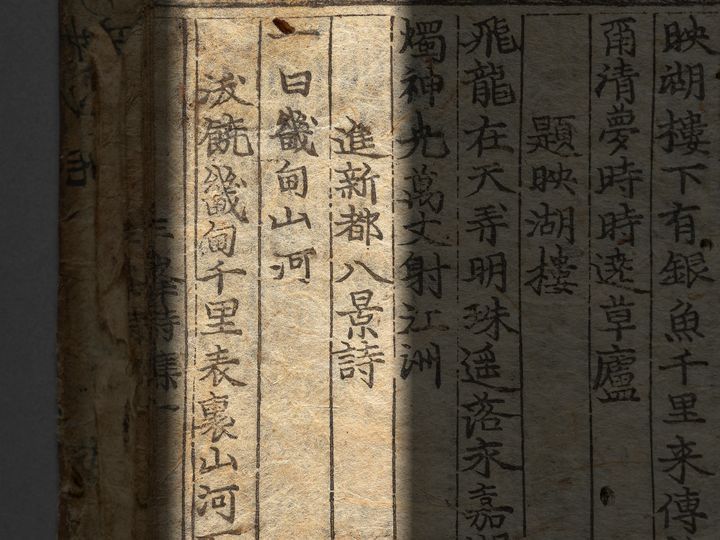 映湖樓下有銀魚千里来傳
爾清夢時時遶草廬
題映湖樓
飛龍在天弄明珠遥落永嘉湖
燭神光萬丈射江洲
進新都八景詩
一曰畿甸山河
沃饒畿甸千里表裏山河
三峯詩集一